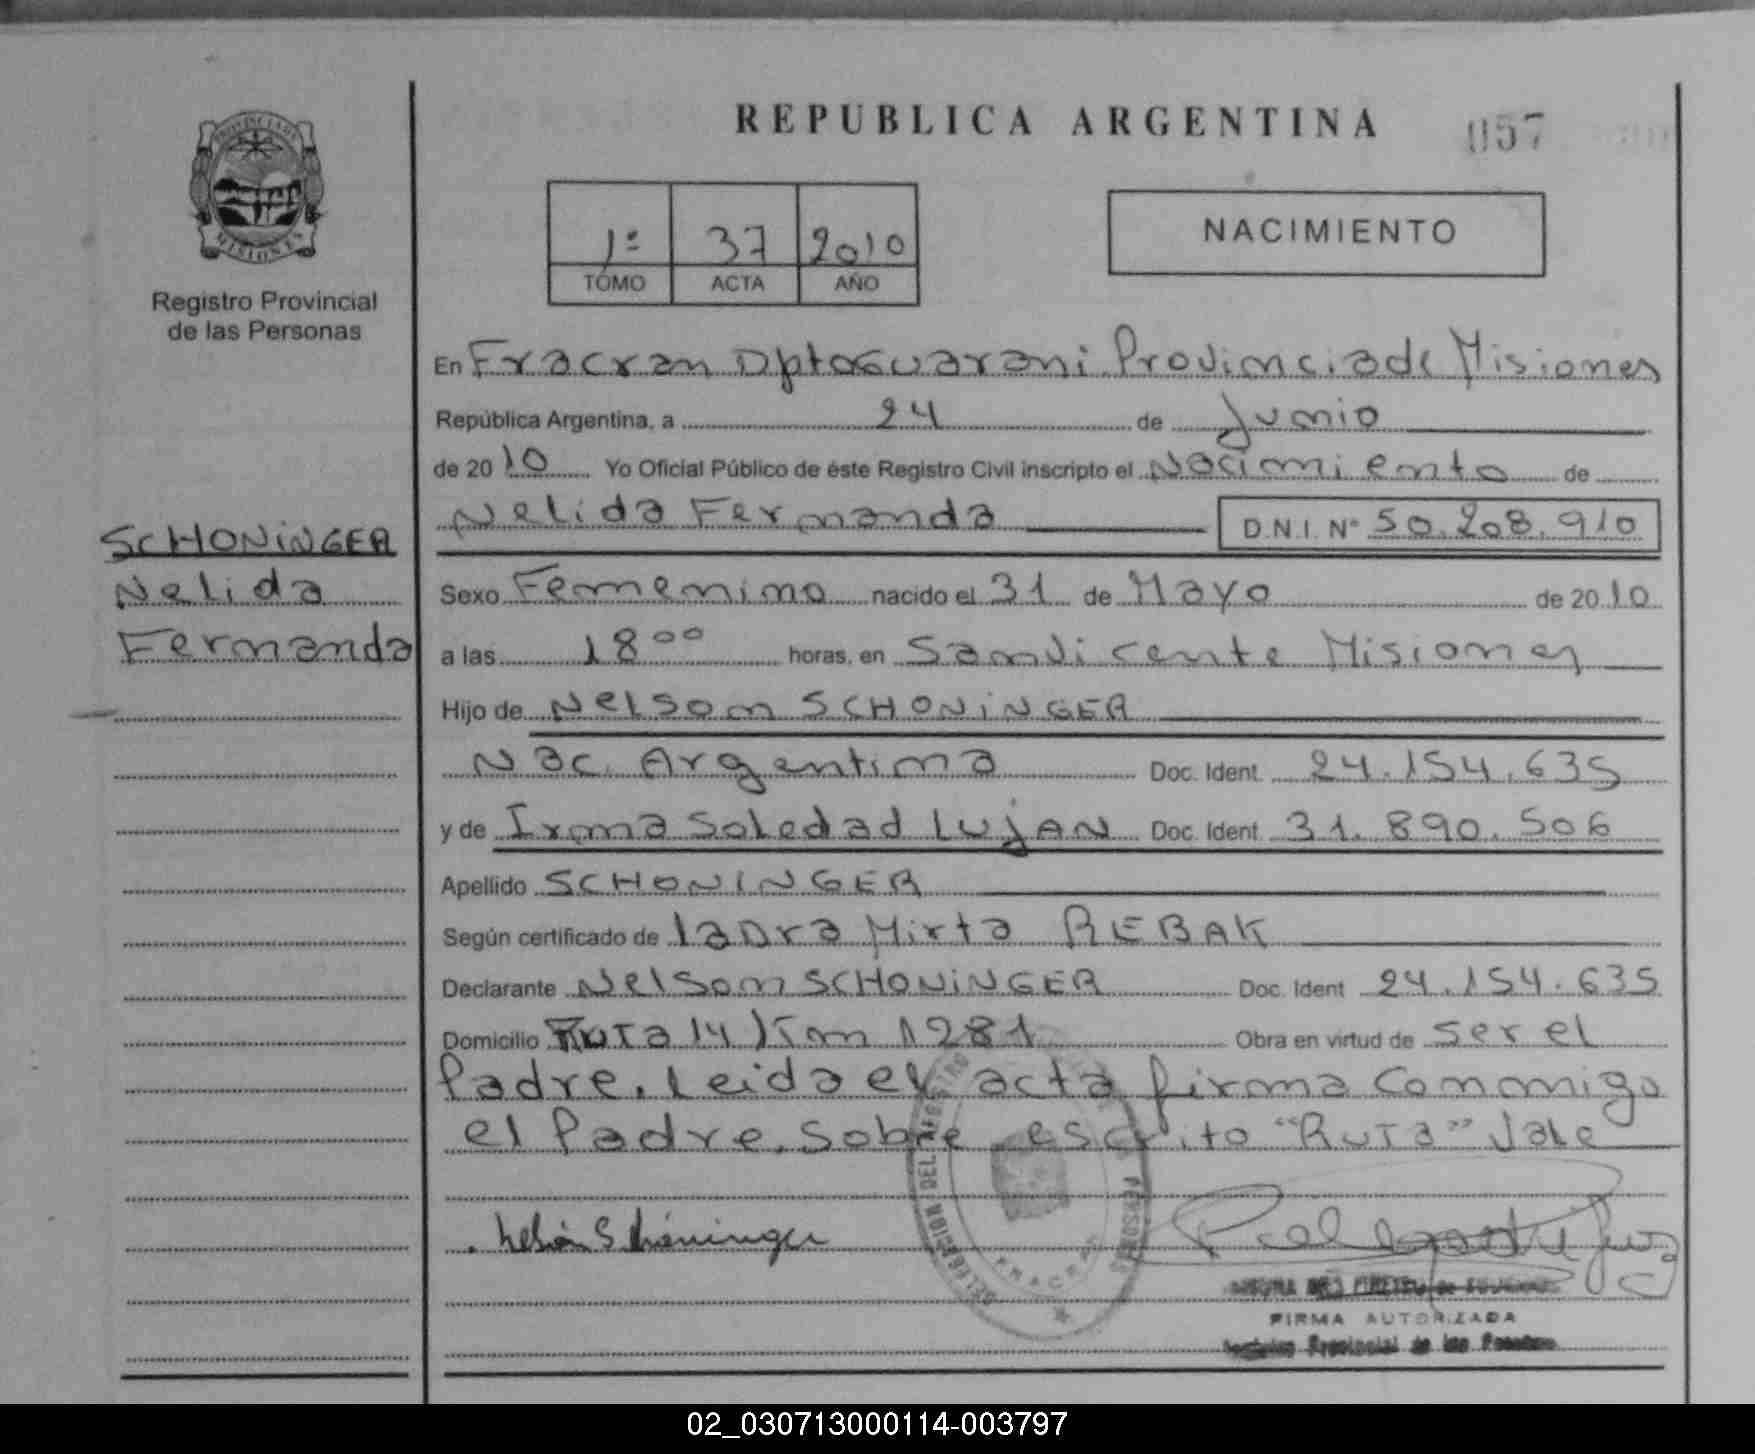 REPUBLICA ARGENTINA
057
PROVINCIA DE
MISIONES
Registro Provincial
de las Personas
1º 37 2010
TOMO ACTA AÑO
NACIMIENTO
En Fracran Dpto Guarani Provincia de Misiones
República Argentina, a 24 de Junio
de 20 10 Yo Oficial Público de éste Registro Civil inscripto el Nacimiento de
Nelida Fernanda D.N.I. Nº 50.208.910
SCHONINGER
Nelida
Fernanda
Sexo Femenino nacido el 31 de Mayo de 20 10
a las 18 00 horas, en San Vicente Misiones
Hijo de Nelson SCHONINGER
Nac. Argentina Doc. Ident. 24.154.635
y de Irma Soledad LUJAN Doc. Ident. 31.890.506
Apellido SCHONINGER
Según certificado de la Dra Mirta REBAK
Declarante Nelson SCHONINGER Doc. Ident 24.154.635
Domicilio Ruta 14 Km 1281 Obra en virtud de ser el
Padre. Leida el acta firma conmigo
el Padre. Sobre escrito "Ruta" Vale
DELEGACION DEL REGISTRO
PERSONAS
FRACRAN
FIRMA AUTORIZADA
Provincial de las Personas
02_030713000114-003797